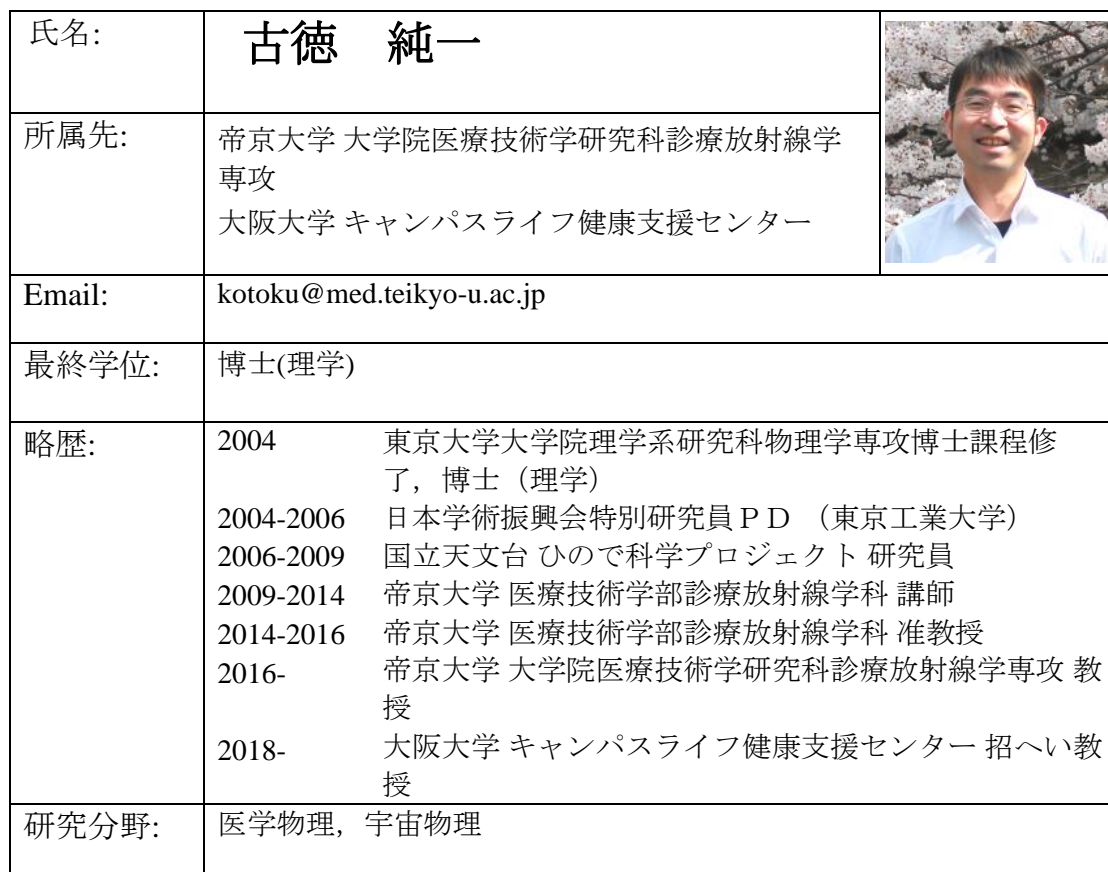 氏名:
古徳　純一
所属先:
帝京大学 大学院医療技術学研究科診療放射線学
専攻
大阪大学 キャンパスライフ健康支援センター
Email:
kotoku@med.teikyo-u.ac.jp
最終学位:
博士(理学)
略歴:
2004 東京大学大学院理学系研究科物理学専攻博士課程修
了，博士（理学）
2004-2006 日本学術振興会特別研究員ＰＤ （東京工業大学）
2006-2009 国立天文台 ひので科学プロジェクト 研究員
2009-2014 帝京大学 医療技術学部診療放射線学科 講師
2014-2016 帝京大学 医療技術学部診療放射線学科 准教授
2016- 帝京大学 大学院医療技術学研究科診療放射線学専攻 教
授
2018- 大阪大学 キャンパスライフ健康支援センター 招へい教
授
研究分野:
医学物理，宇宙物理